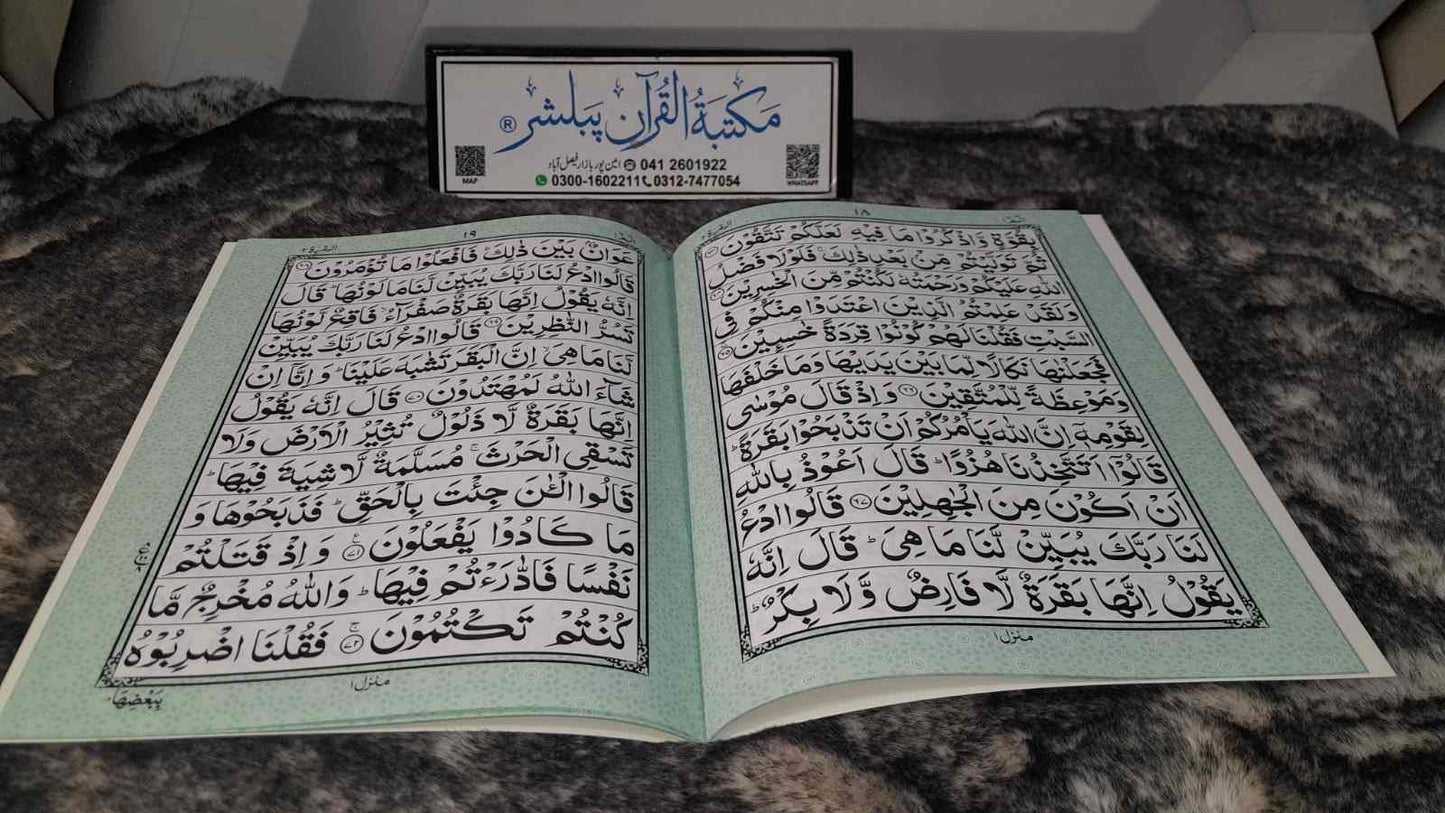 مَکتبَۃُ القُرآن پَبلشر ®
امین پور بازار فیصل آباد 041 2601922
0300-1602211 0312-7477054
MAP
WHATSAPP
١٨
بِقُوَّةٍ وَّاذْكُرُوْا مَا فِيْهِ لَعَلَّكُمْ تَتَّقُوْنَ
ثُمَّ تَوَلَّيْتُمْ مِّنْۢ بَعْدِ ذٰلِكَ ۚ فَلَوْلَا فَضْلُ
اللّٰهِ عَلَيْكُمْ وَرَحْمَتُهٗ لَكُنْتُمْ مِّنَ الْخٰسِرِيْنَ
وَلَقَدْ عَلِمْتُمُ الَّذِيْنَ اعْتَدَوْا مِنْكُمْ فِى
السَّبْتِ فَقُلْنَا لَهُمْ كُوْنُوْا قِرَدَةً خٰسِـِٕيْنَ ۶۵
فَجَعَلْنٰهَا نَكَالًا لِّمَا بَيْنَ يَدَيْهَا وَمَا خَلْفَهَا
وَمَوْعِظَةً لِّلْمُتَّقِيْنَ ۶۶ وَاِذْ قَالَ مُوْسٰى
لِقَوْمِهٖۤ اِنَّ اللّٰهَ يَاْمُرُكُمْ اَنْ تَذْبَحُوْا بَقَرَةً ؕ
قَالُوْۤا اَتَتَّخِذُنَا هُزُوًا ؕ قَالَ اَعُوْذُ بِاللّٰهِ
اَنْ اَكُوْنَ مِنَ الْجٰهِلِيْنَ ۶۷ قَالُوا ادْعُ
لَنَا رَبَّكَ يُبَيِّنْ لَّنَا مَا هِىَ ؕ قَالَ اِنَّهٗ
يَقُوْلُ اِنَّهَا بَقَرَةٌ لَّا فَارِضٌ وَّلَا بِكْرٌ ؕ
منزل ١
١٩
عَوَانٌۢ بَيْنَ ذٰلِكَ ؕ فَافْعَلُوْا مَا تُؤْمَرُوْنَ ۶۸
قَالُوا ادْعُ لَنَا رَبَّكَ يُبَيِّنْ لَّنَا مَا لَوْنُهَا ؕ قَالَ
اِنَّهٗ يَقُوْلُ اِنَّهَا بَقَرَةٌ صَفْرَآءُ ۙ فَاقِعٌ لَّوْنُهَا
تَسُرُّ النّٰظِرِيْنَ ۶۹ قَالُوا ادْعُ لَنَا رَبَّكَ يُبَيِّنْ
لَّنَا مَا هِىَ ۙ اِنَّ الْبَقَرَ تَشٰبَهَ عَلَيْنَا ؕ وَاِنَّاۤ اِنْ
شَآءَ اللّٰهُ لَمُهْتَدُوْنَ ۷۰ قَالَ اِنَّهٗ يَقُوْلُ
اِنَّهَا بَقَرَةٌ لَّا ذَلُوْلٌ تُثِيْرُ الْاَرْضَ وَلَا
تَسْقِى الْحَرْثَ ۚ مُسَلَّمَةٌ لَّا شِيَةَ فِيْهَا ؕ
قَالُوا الْـٰٔنَ جِئْتَ بِالْحَقِّ ؕ فَذَبَحُوْهَا وَ
مَا كَادُوْا يَفْعَلُوْنَ ۷۱ وَاِذْ قَتَلْتُمْ
نَفْسًا فَادّٰرَءْتُمْ فِيْهَا ؕ وَاللّٰهُ مُخْرِجٌ مَّا
كُنْتُمْ تَكْتُمُوْنَ ۷۲ فَقُلْنَا اضْرِبُوْهُ
منزل ١
بِبَعْضِهَا